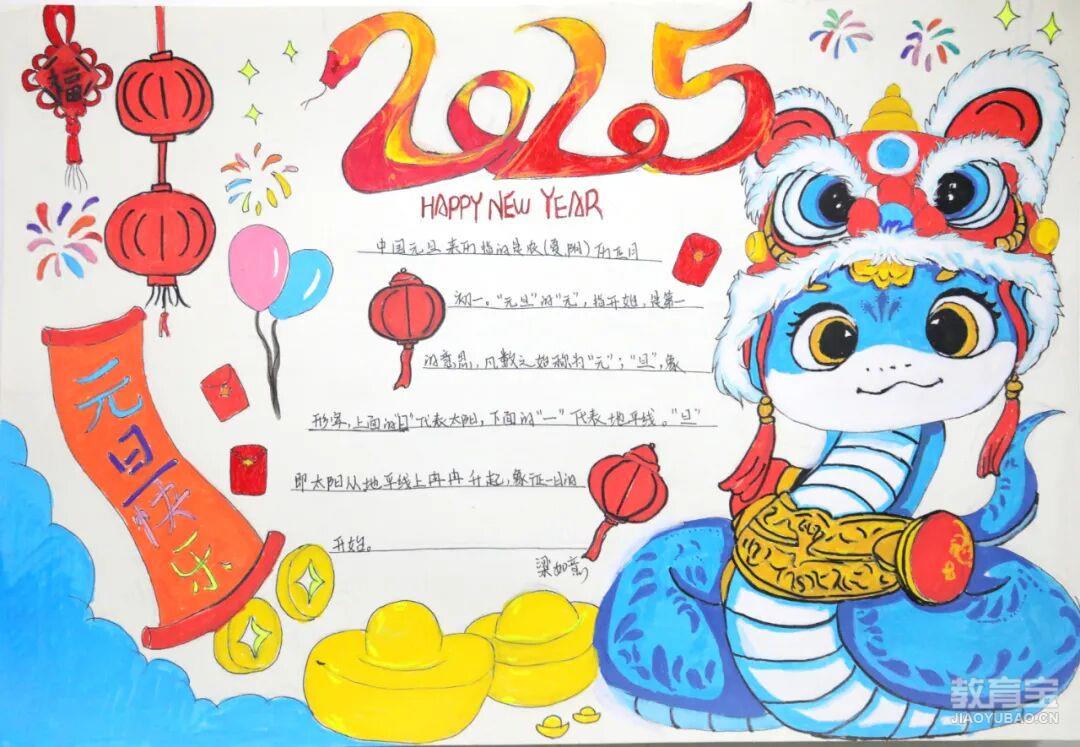 福
2025
HAPPY NEW YEAR
中国元旦来历指的是农(夏、阴)历正月
初一。"元旦"的"元",指开始,是第一
的意思,凡数之始称为"元";"旦",象
形字,上面的"日"代表太阳,下面的"一"代表地平线。"旦"
即太阳从地平线上冉冉升起,象征一日的
开始。
梁如意
元旦快乐
教育宝
JIAOYUBAO.CN